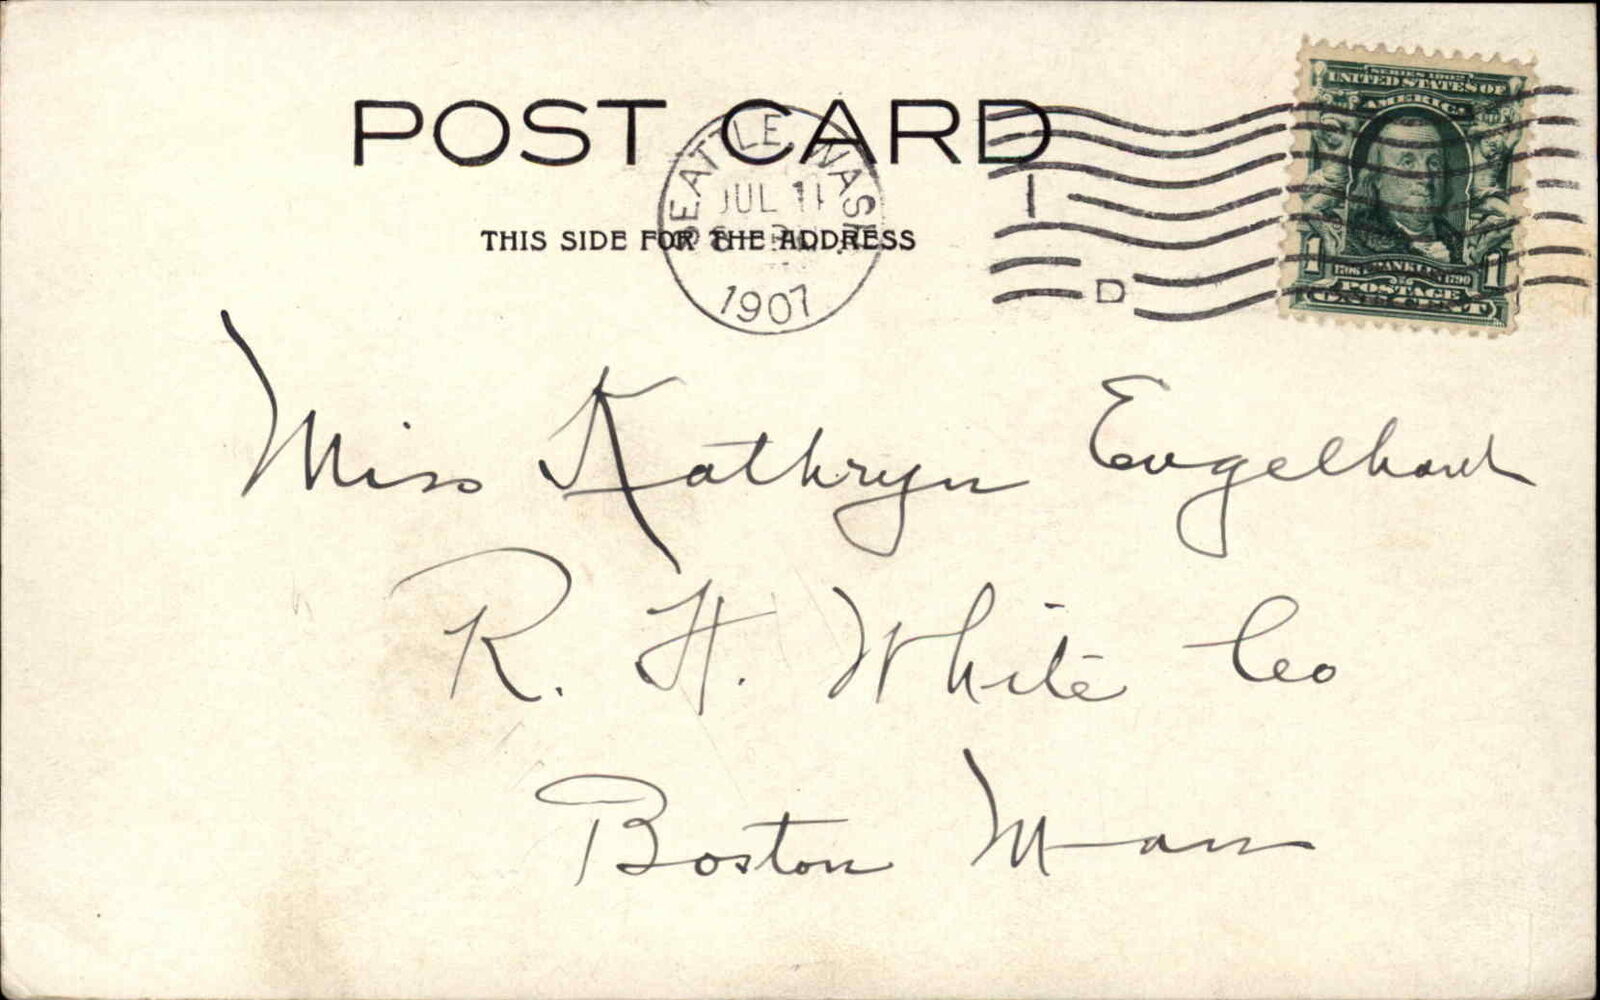 POST CARD
THIS SIDE FOR THE ADDRESS
SEATTLE WASH.
JUL 11
1907
1
D
SERIES 1902
UNITED STATES OF
AMERICA
1 1706 FRANKLIN 1790 1
POSTAGE
ONE CENT
Miss Kathryn Engelhard
R. H. White Co
Boston Mass